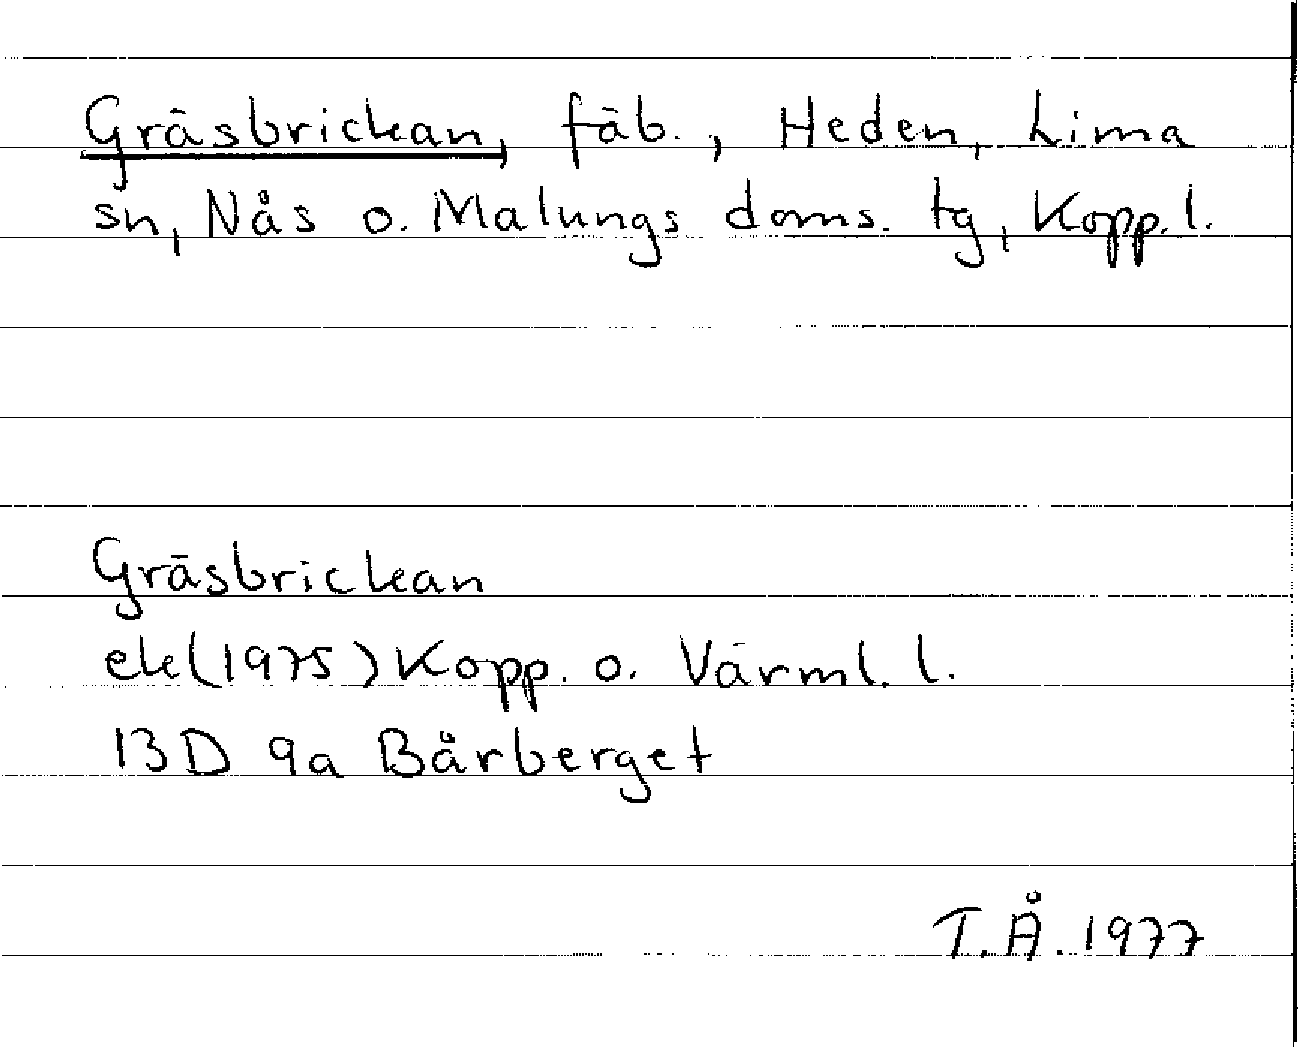 Gräsbrickan, fäb., Heden, Lima
sn, Nås o. Malungs doms. tg, Kopp. l.
Gräsbrickan
ek (1975) Kopp. o. Värml. l.
13D 9a Bårberget
T.Å. 1977